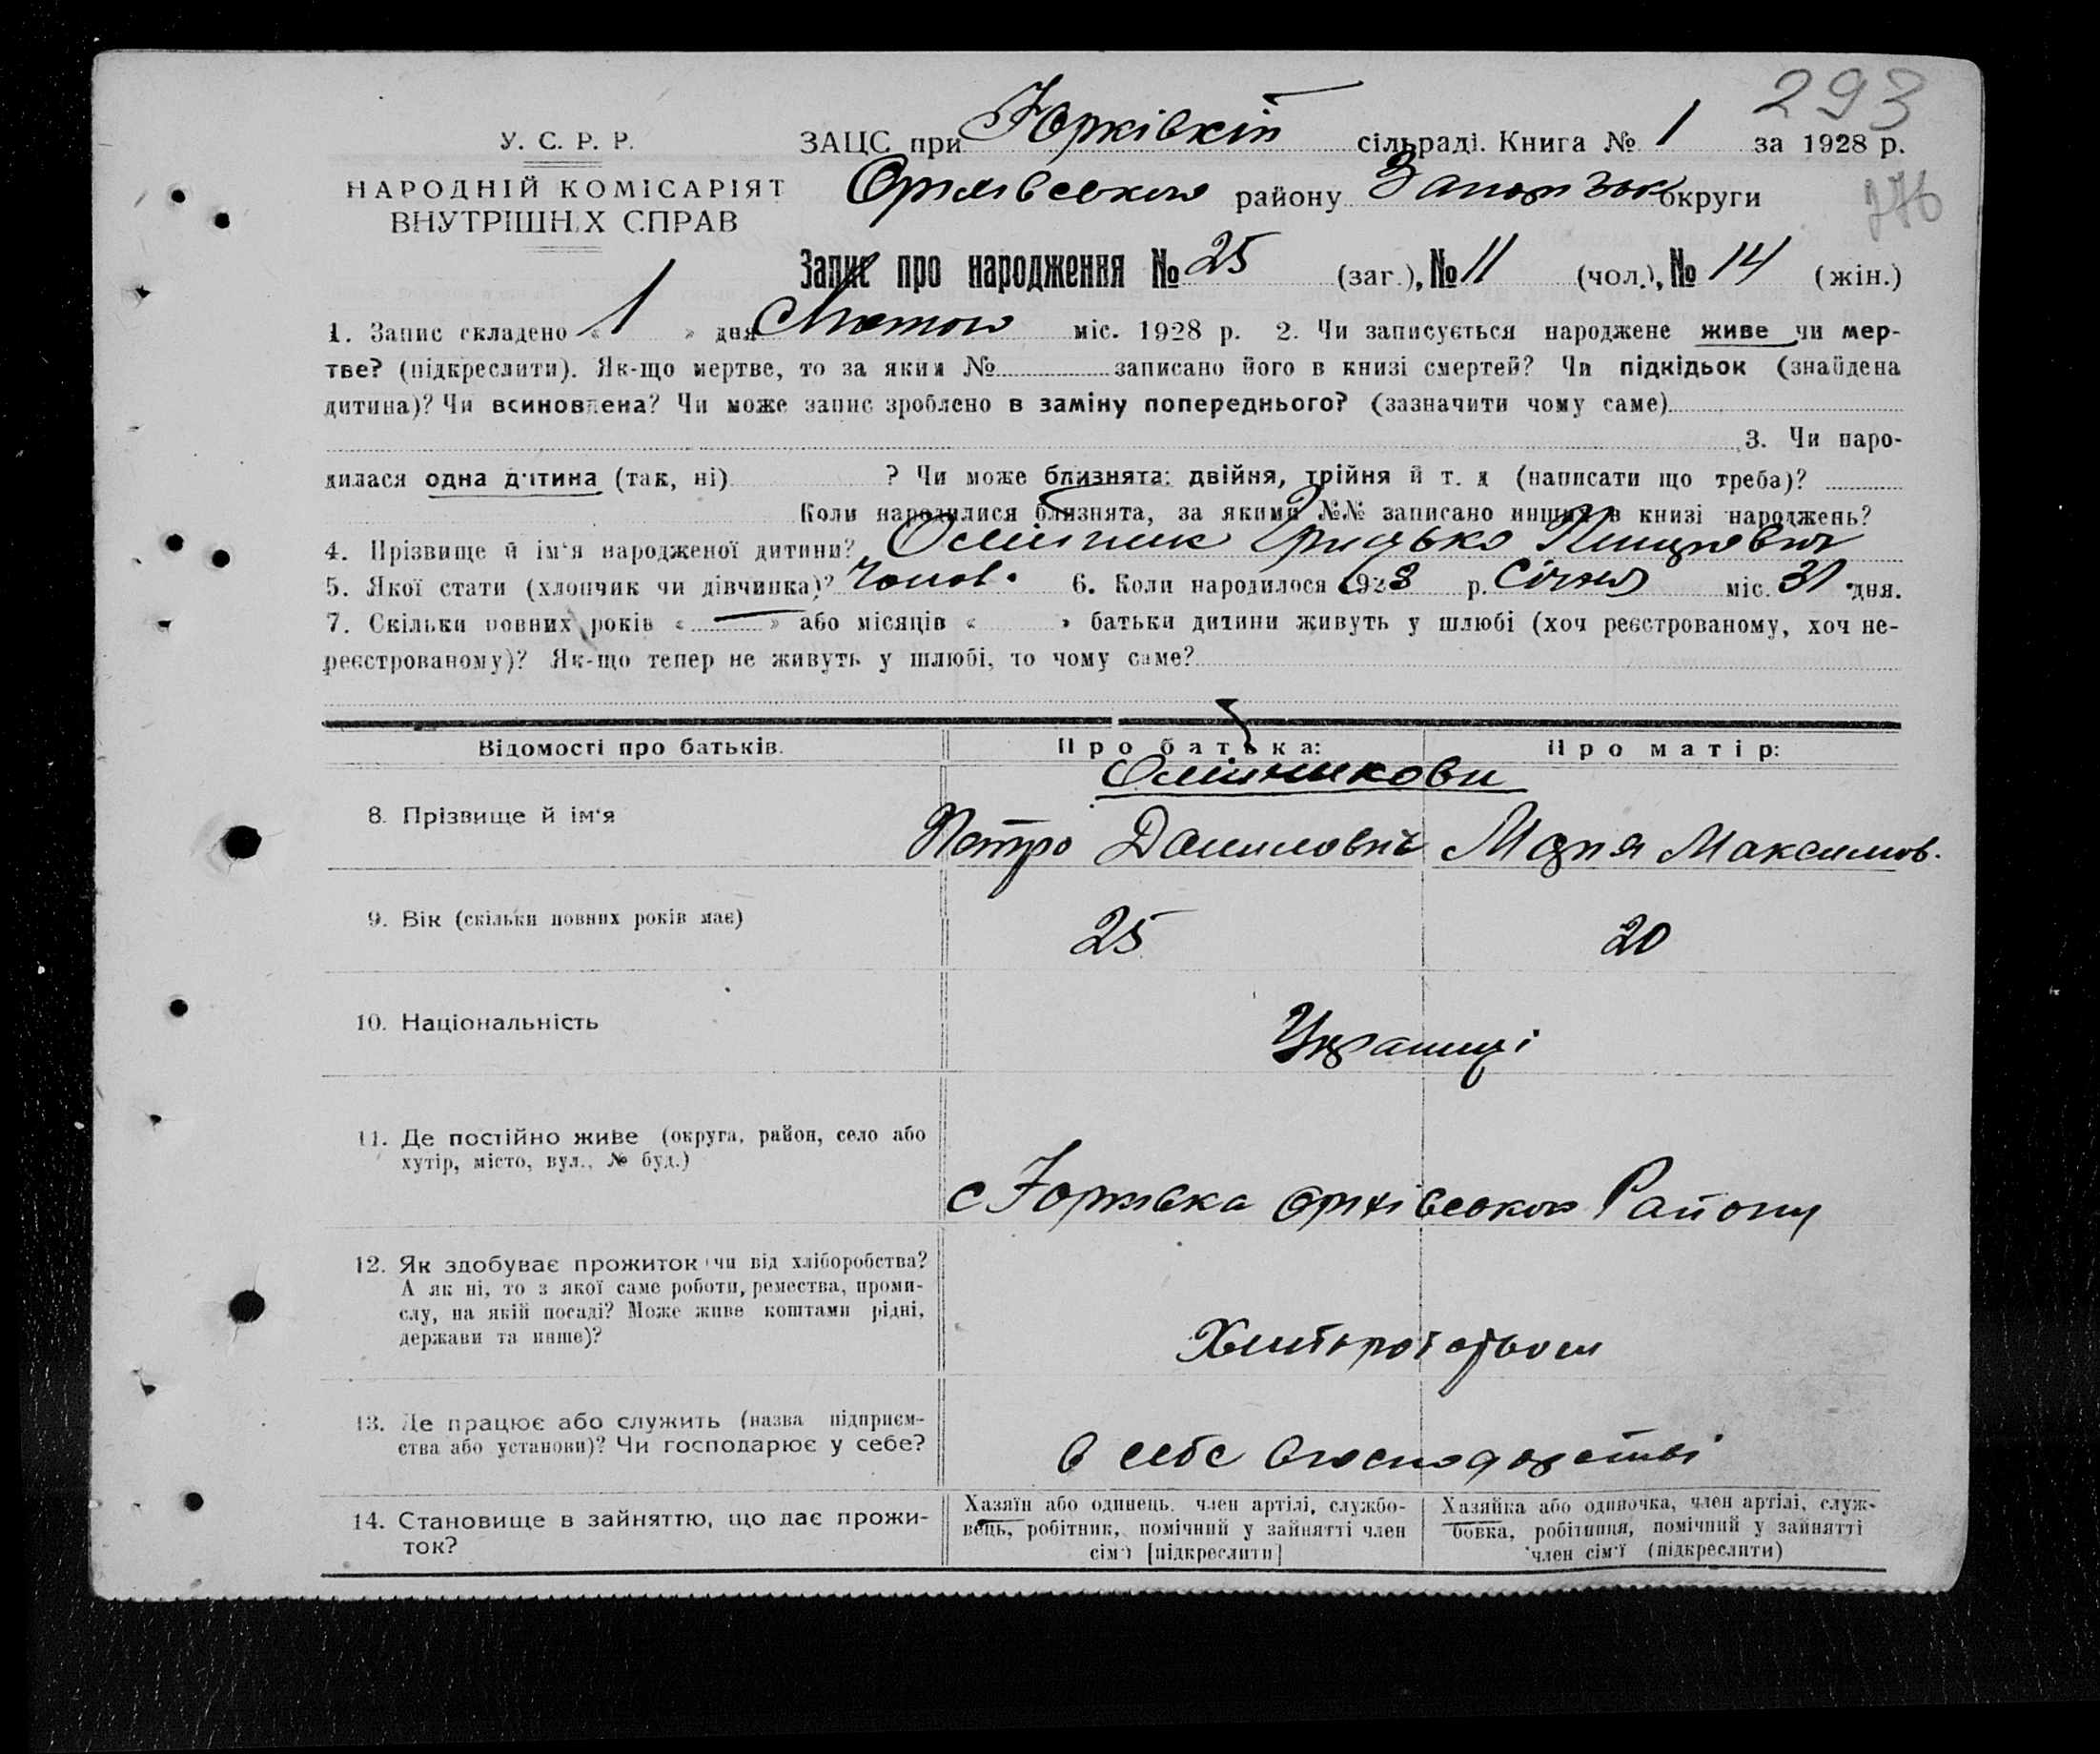 293
У. С. Р. Р.
НАРОДНІЙ КОМІСАРІЯТ
ВНУТРІШН.Х СПРАВ
ЗАЦС при Юрківкій сільраді. Книга № 1 за 1928 р.
району Запоріз округи
276
Запис про народження № 25 (заг.), № 11 (чол.), № 14 (жін.)
1. Запис складено « 1 » дня Лютого міс. 1928 р. 2. Чи записується народжене живе чи мер-
тве? (підкреслити). Як-що мертве, то за яким № записано його в книзі смертей? Чи підкідьок (знайдена
дитина)? Чи всиновлена? Чи може запис зроблено в заміну попереднього? (зазначити чому саме)
3. Чи наро-
дилася одна дитина (так, ні) ? Чи може близнята: двійня, трійня й т. д (написати що треба)?
Коли народилися близнята, за якими №№ записано инших в книзі народжень?
4. Прізвище й ім‘я народженої дитини? Олійник Грицько
5. Якої стати (хлопчик чи дівчинка)? Чолов. 6. Коли народилося 1928 р. Січня міс. 31 дня.
7. Скільки повних років « — » або місяців « » батьки дитини живуть у шлюбі (хоч реєстрованому, хоч не-
реєстрованому)? Як-що тепер не живуть у шлюбі, то чому саме?
Відомості про батьків. Про батька: Про матір:
Олійникови
8. Прізвище й ім‘я Петро Данилович Марія Максимов.
9. Вік (скільки повних років має) 25 20
10. Національність Українці
11. Де постійно живе (округа, район, село або
хутір, місто, вул., № буд.)
с Юрківка Оріхівського Району
12. Як здобуває прожиток чи від хліборобства?
А як ні, то з якої саме роботи, ремества, проми-
слу, на якій посаді? Може живе коштами рідні,
держави та инше)?
13. Де працює або служить (назва підприєм-
ства або установи)? Чи господарює у себе?
в себе
14. Становище в зайняттю, що дає прожи-
ток?
Хазяїн або одинець, член артілі, службо-
вець, робітник, помічний у зайнятті член
сім‘ї [підкреслити]
Хазяйка або одиночка, член артілі, служ-
бовка, робітниця, помічний у зайнятті
член сім‘ї (підкреслити)